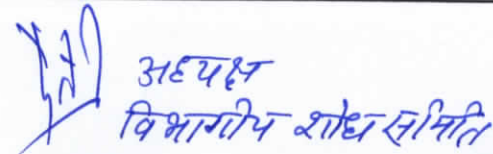 अध्यक्ष
विभागीय शोध समिति